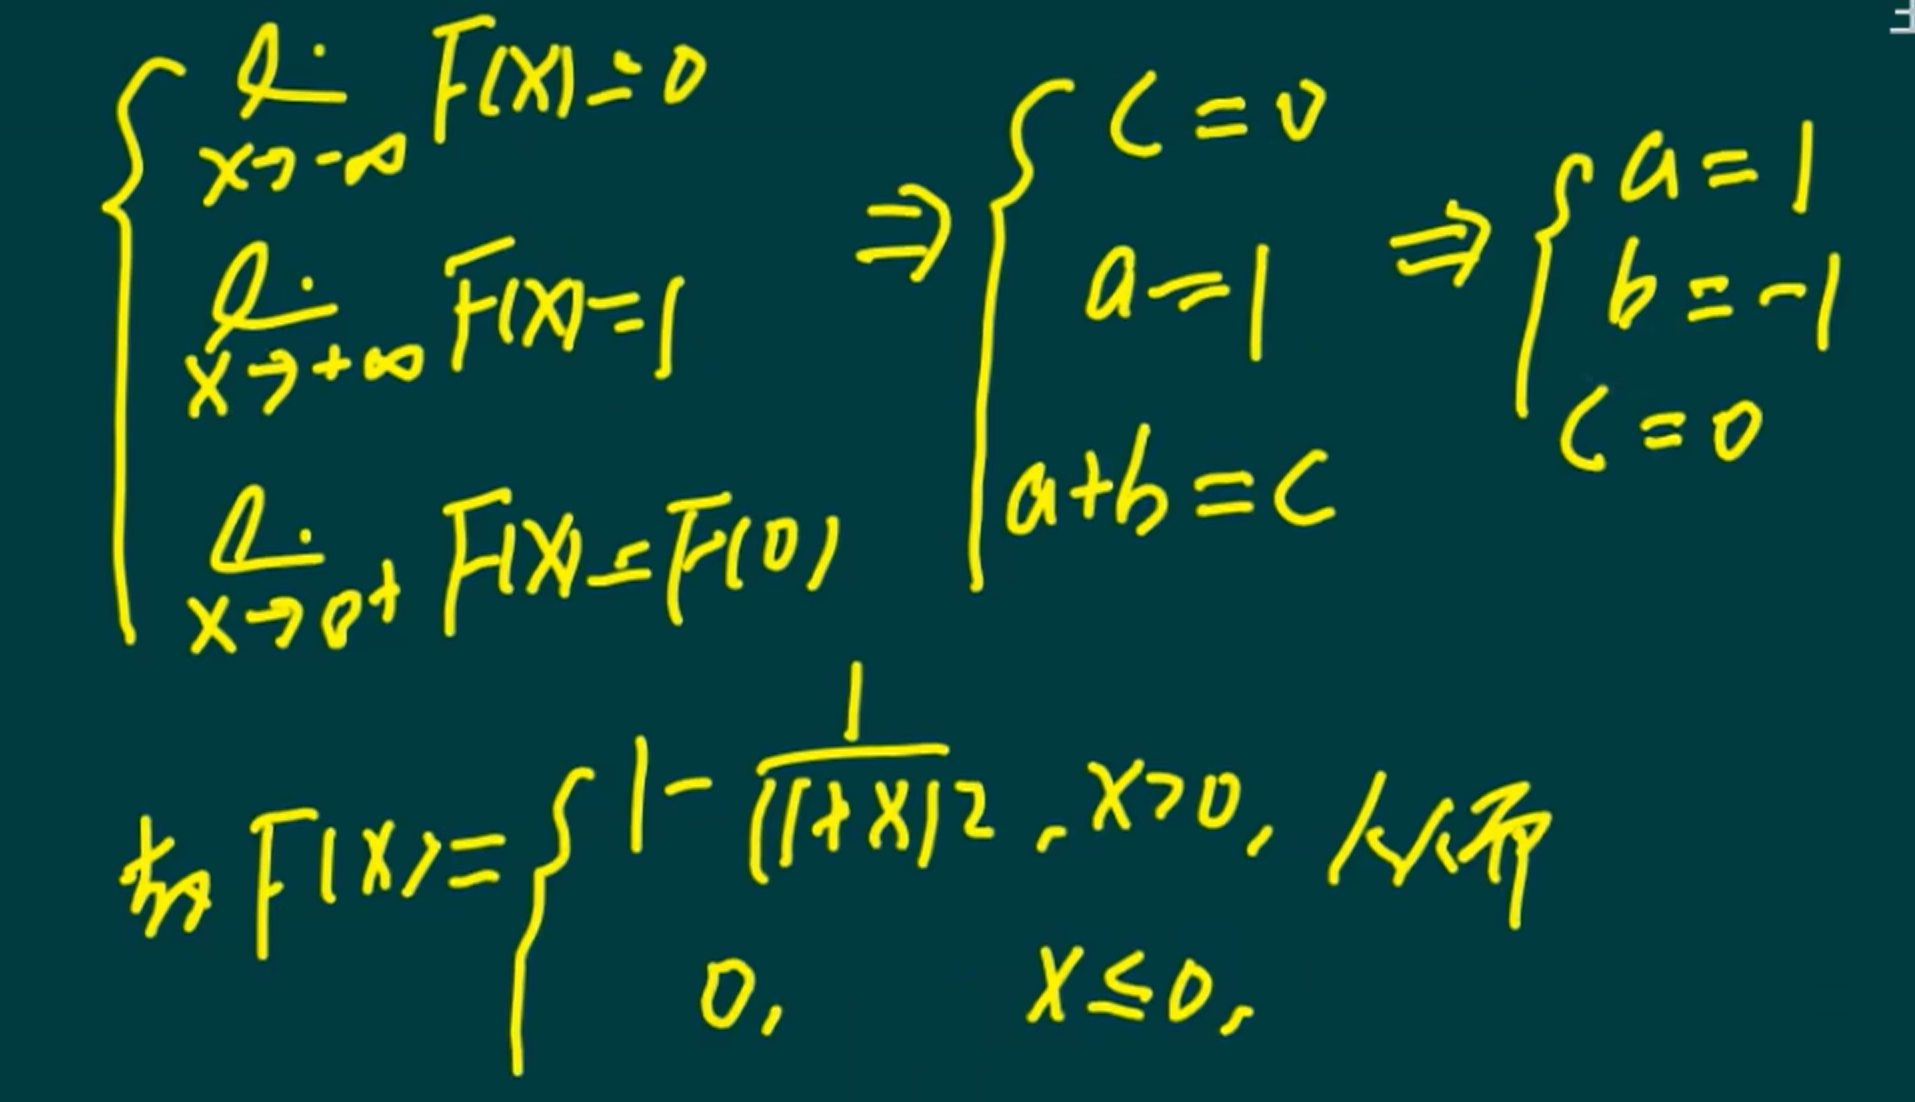 { lim x→-∞ F(x)=0
lim x→+∞ F(x)=1
lim x→0+ F(x)=F(0)
⇒ { c=0
a=1
a+b=c
⇒ { a=1
b=-1
c=0
故 F(x)= { 1 - 1/(1+x)², x>0, 从而
0, x≤0,